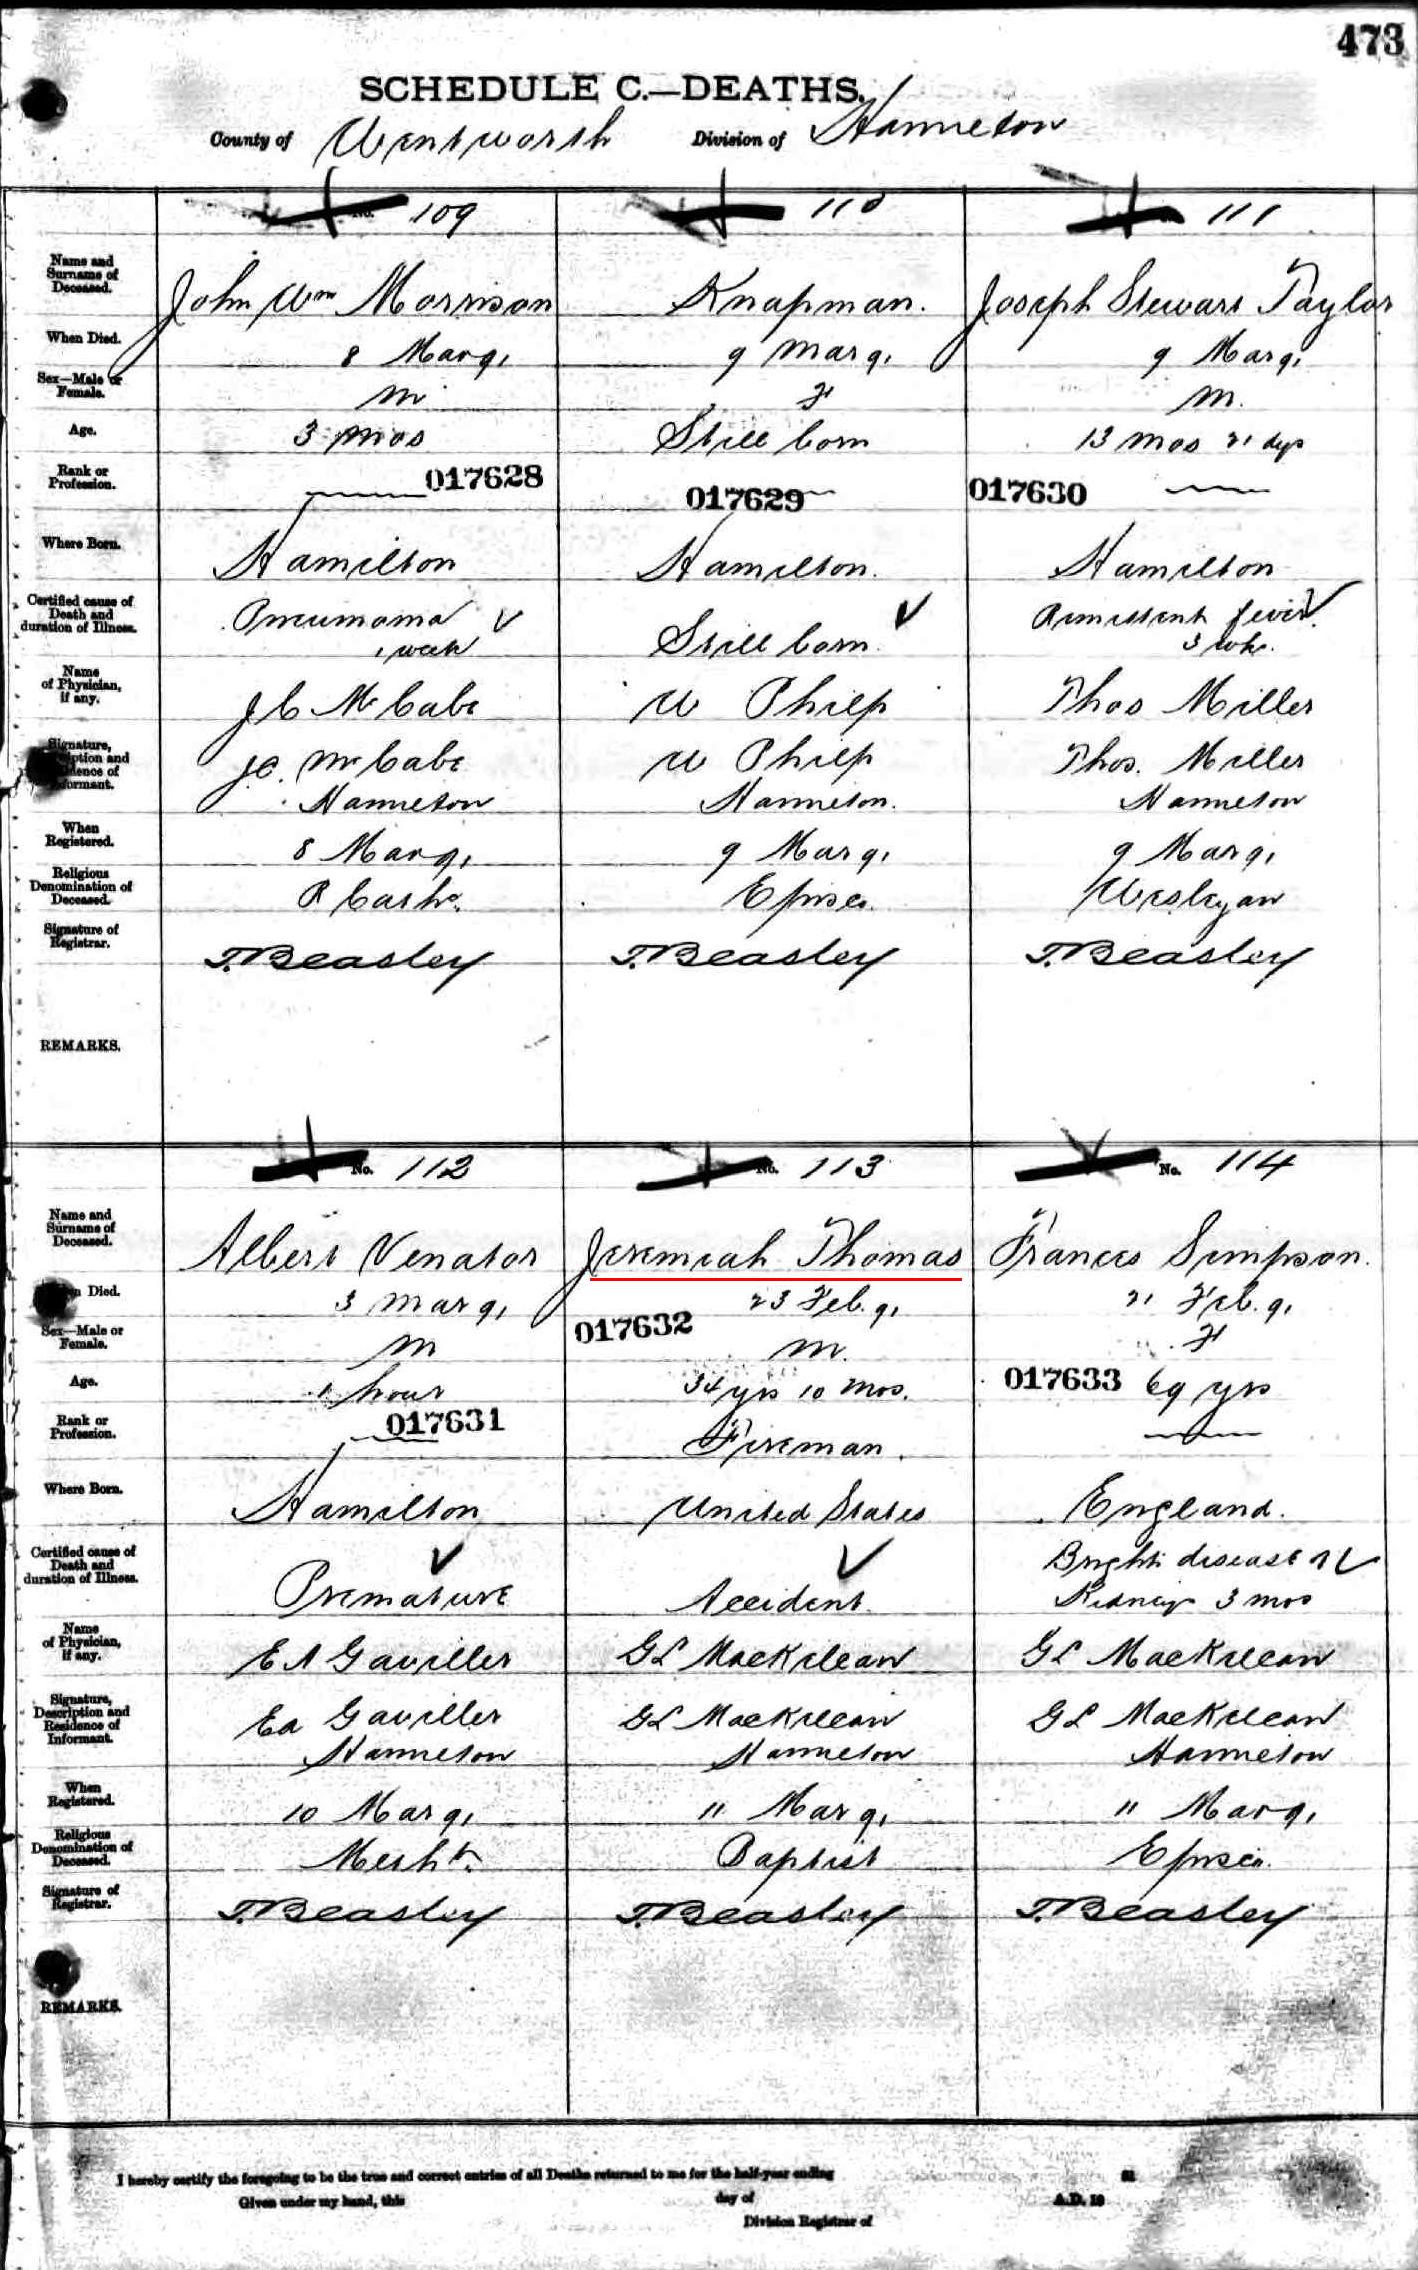 473
SCHEDULE C.—DEATHS.
County of Wentworth Division of Hamilton
No. 109
110
111
Name and Surname of Deceased.
John Wm Morrison
Knapman.
Joseph Stewart Taylor
When Died.
8 Mar 91
9 Mar 91
9 Mar 91
Sex—Male or Female.
M
F
M.
Age.
3 mos
Still born
13 mos 21 dys
Rank or Profession.
017628
017629
017630
Where Born.
Hamilton
Hamilton.
Hamilton
Certified cause of Death and duration of Illness.
Pneumonia
1 week
Still born
Remittent fever.
3 wks.
Name of Physician, if any.
J C McCabe
W Philp
Thos Miller
Signature, Description and Residence of Informant.
J C. McCabe
Hamilton
W Philp
Hamilton.
Thos. Miller
Hamilton
When Registered.
8 Mar 91
9 Mar 91
9 Mar 91
Religious Denomination of Deceased.
R Cathc.
Episco.
Wesleyan
Signature of Registrar.
T. Beasley
T. Beasley
T. Beasley
REMARKS.
No. 112
No. 113
No. 114
Name and Surname of Deceased.
Albert Venator
Jeremiah Thomas
Frances Simpson.
When Died.
3 Mar 91
23 Feb. 91
21 Feb. 91
Sex—Male or Female.
M
017632
M.
F
Age.
1 hour
34 yrs 10 mos.
017633 69 yrs
Rank or Profession.
017631
Fireman.
Where Born.
Hamilton
United States
England.
Certified cause of Death and duration of Illness.
Premature
Accident.
Brights disease of
Kidneys 3 mos
Name of Physician, if any.
E A Gaviller
G L MacKelcan
G L MacKelcan
Signature, Description and Residence of Informant.
E A Gaviller
Hamilton
G L MacKelcan
Hamilton
G L MacKelcan
Hamilton
When Registered.
10 Mar 91
11 Mar 91
11 Mar 91
Religious Denomination of Deceased.
Baptist
Episco.
Signature of Registrar.
T. Beasley
T. Beasley
T. Beasley
REMARKS.
I hereby certify the foregoing to be the true and correct entries of all Deaths returned to me for the half-year ending
Given under my hand, this day of A.D. 18
Division Registrar of